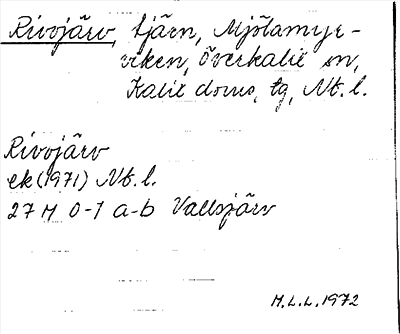 Rivojärv, tjärn, Mjölamyr-
viken, överkalix sn,
Kalix doms, tg, Nb. l.
Rivojärv
ek (1971) Nb. l.
27 M 0-1 a-b Vallsjärv
M.L.L. 1972